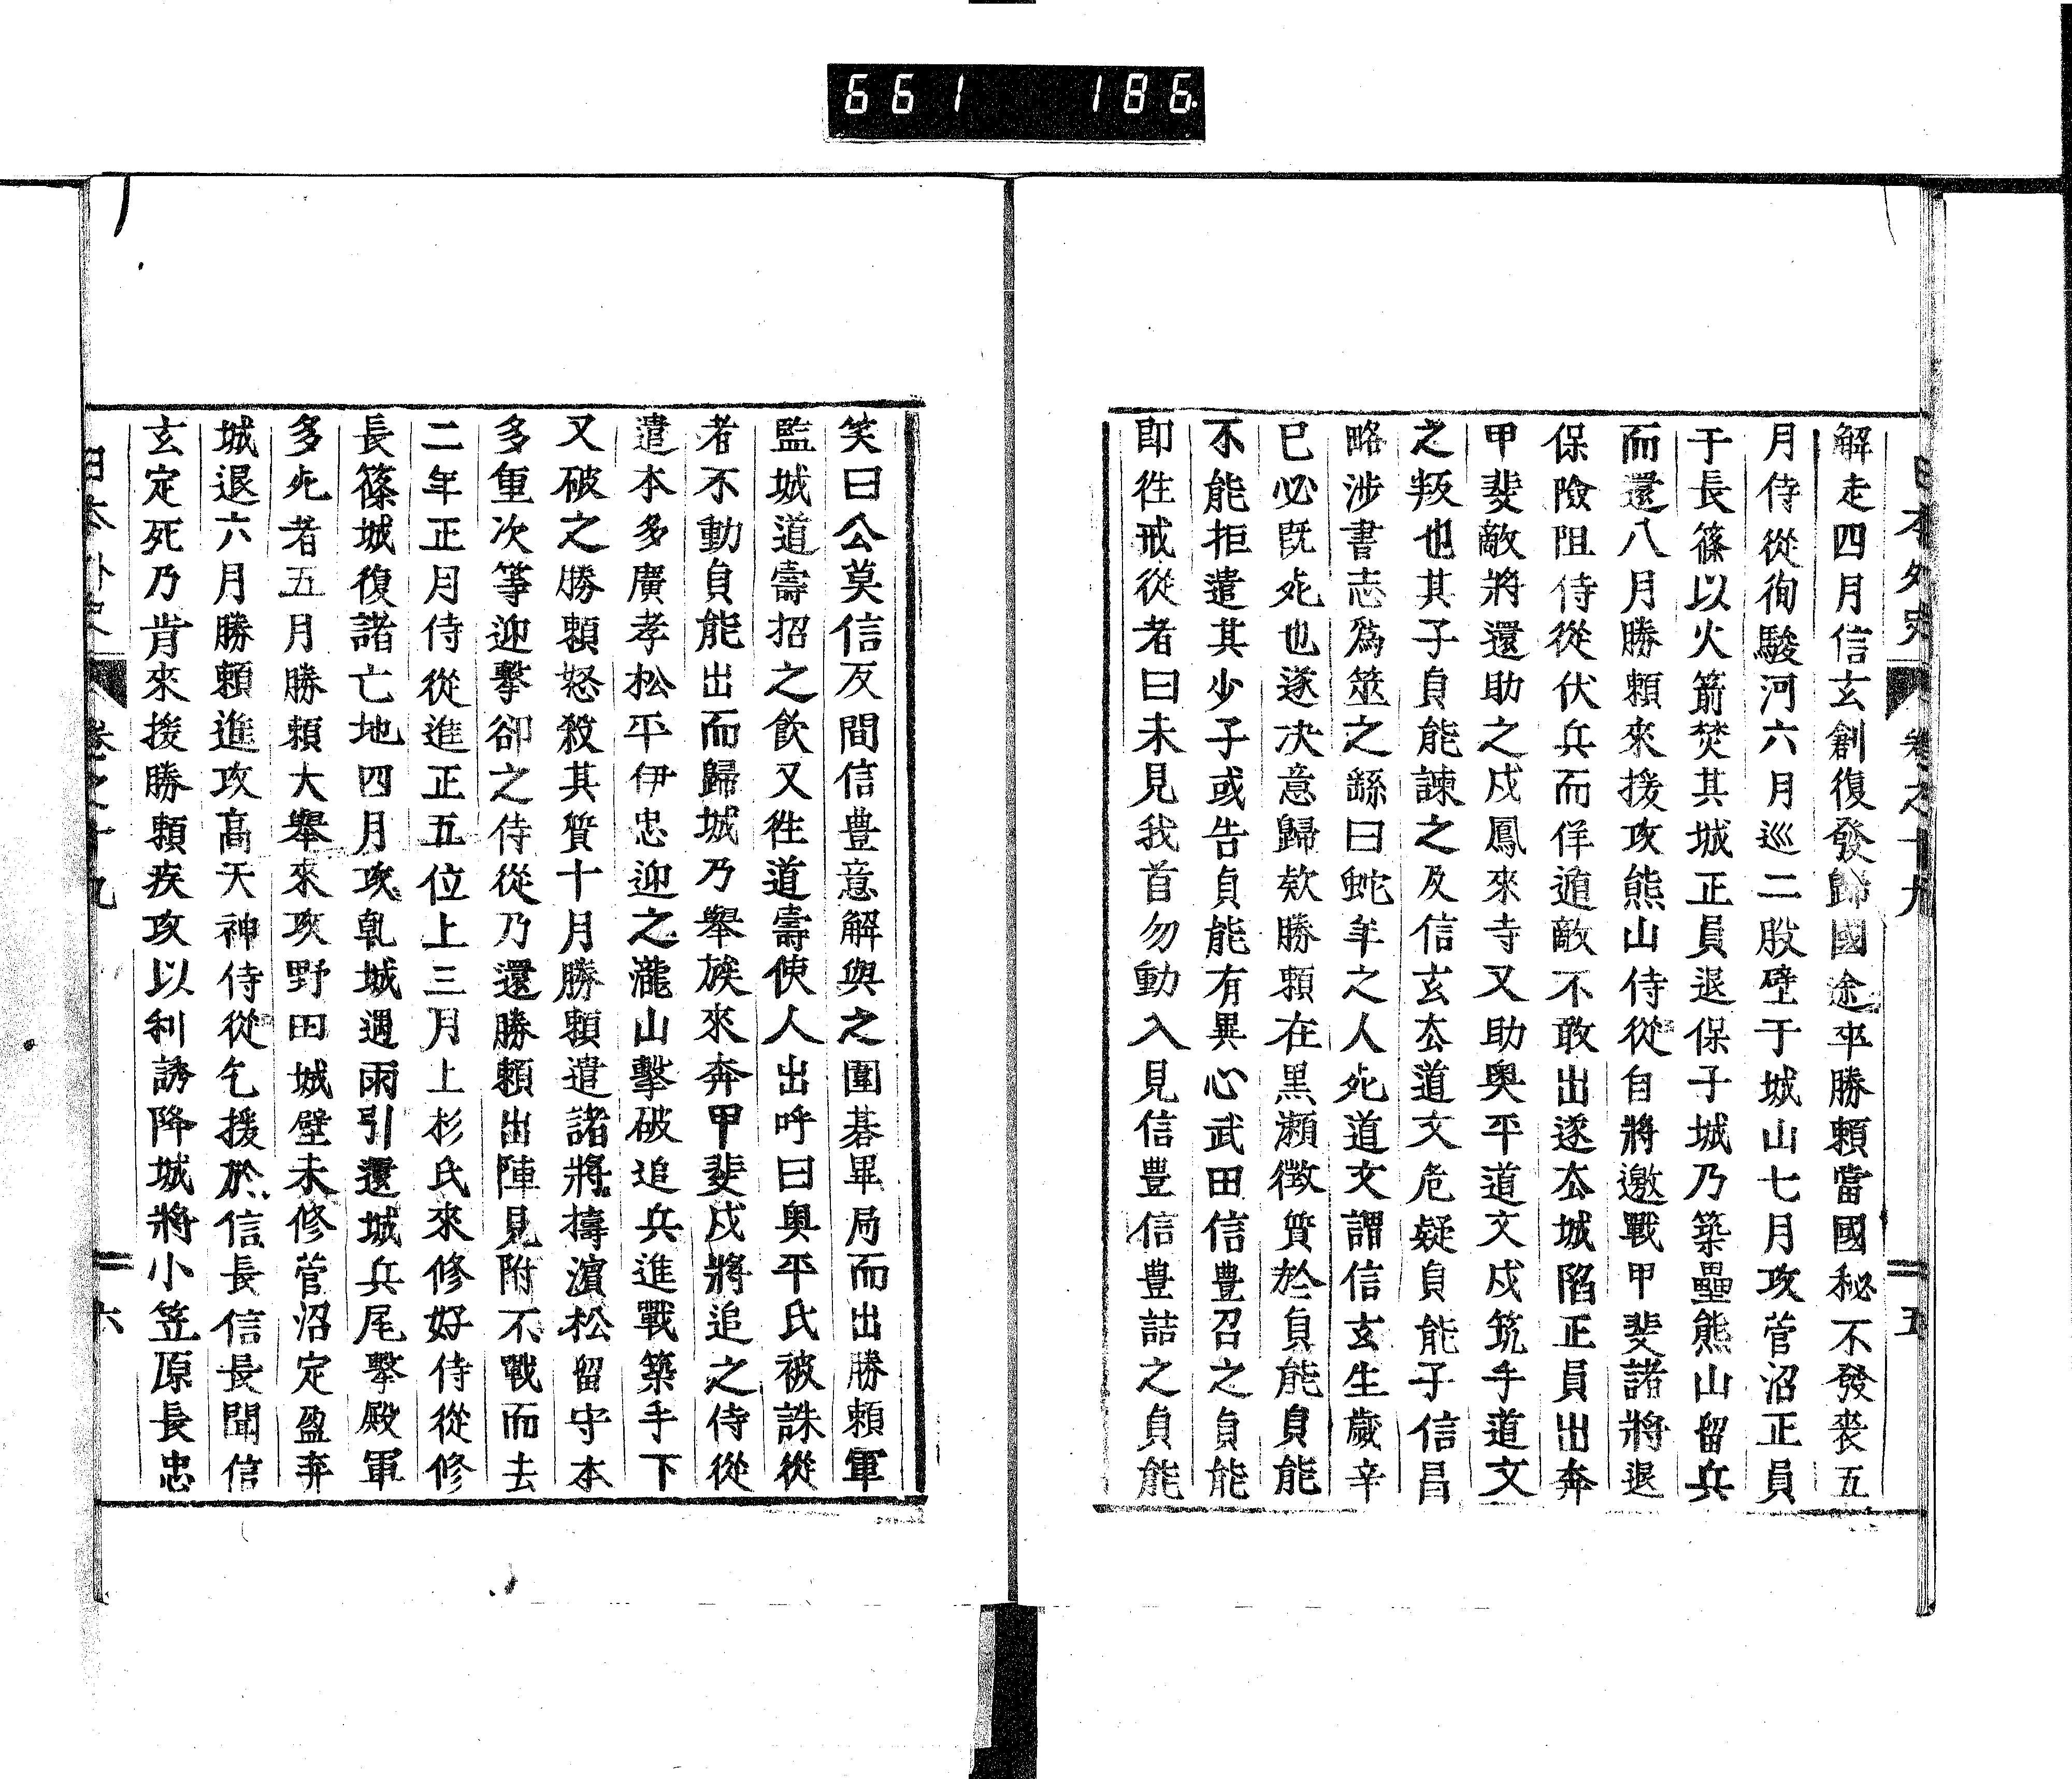 661 186
日本外史 卷之十九 五
解走四月信玄創復發歸國途卒勝賴當國秘不發喪五
月侍從徇駿河六月巡二股壁于城山七月攻菅沼正員
于長篠以火箭焚其城正員退保子城乃築壘熊山留兵
而還八月勝賴來援攻熊山侍從自將邀戰甲斐諸將退
保險阻侍從伏兵而佯遁敵不敢出遂厺城陷正員出奔
甲斐敵將還助之戍鳳來寺又助奧平道文戍筑手道文
之叛也其子貞能諫之及信玄厺道文危疑貞能子信昌
略涉書志爲筮之繇曰蛇年之人死道文謂信玄生歲辛
巳必既死也遂決意歸欵勝賴在黑瀨徵質於貞能貞能
不能拒遣其少子或告貞能有異心武田信豊召之貞能
卽徃戒從者曰未見我首勿動入見信豊信豊詰之貞能
笑曰公莫信反間信豊意解與之圍碁畢局而出勝賴軍
監城道壽招之飮又徃道壽使人出呼曰奧平氏被誅從
者不動貞能出而歸城乃舉族來奔甲斐戍將追之侍從
遣本多廣孝松平伊忠迎之瀧山擊破追兵進戰築手下
又破之勝賴怒殺其質十月勝賴遣諸將擣濵松留守本
多重次等迎擊卻之侍從乃還勝賴出陣見附不戰而去
二年正月侍從進正五位上三月上杉氏來修好侍從修
長篠城復諸亡地四月攻乹城遇雨引還城兵尾擊殿軍
多死者五月勝賴大舉來攻野田城壁未修菅沼定盈弃
城退六月勝賴進攻高天神侍從乞援於信長信長聞信
玄定死乃肯來援勝賴疾攻以利誘降城將小笠原長忠
日本外史 卷之十九 六